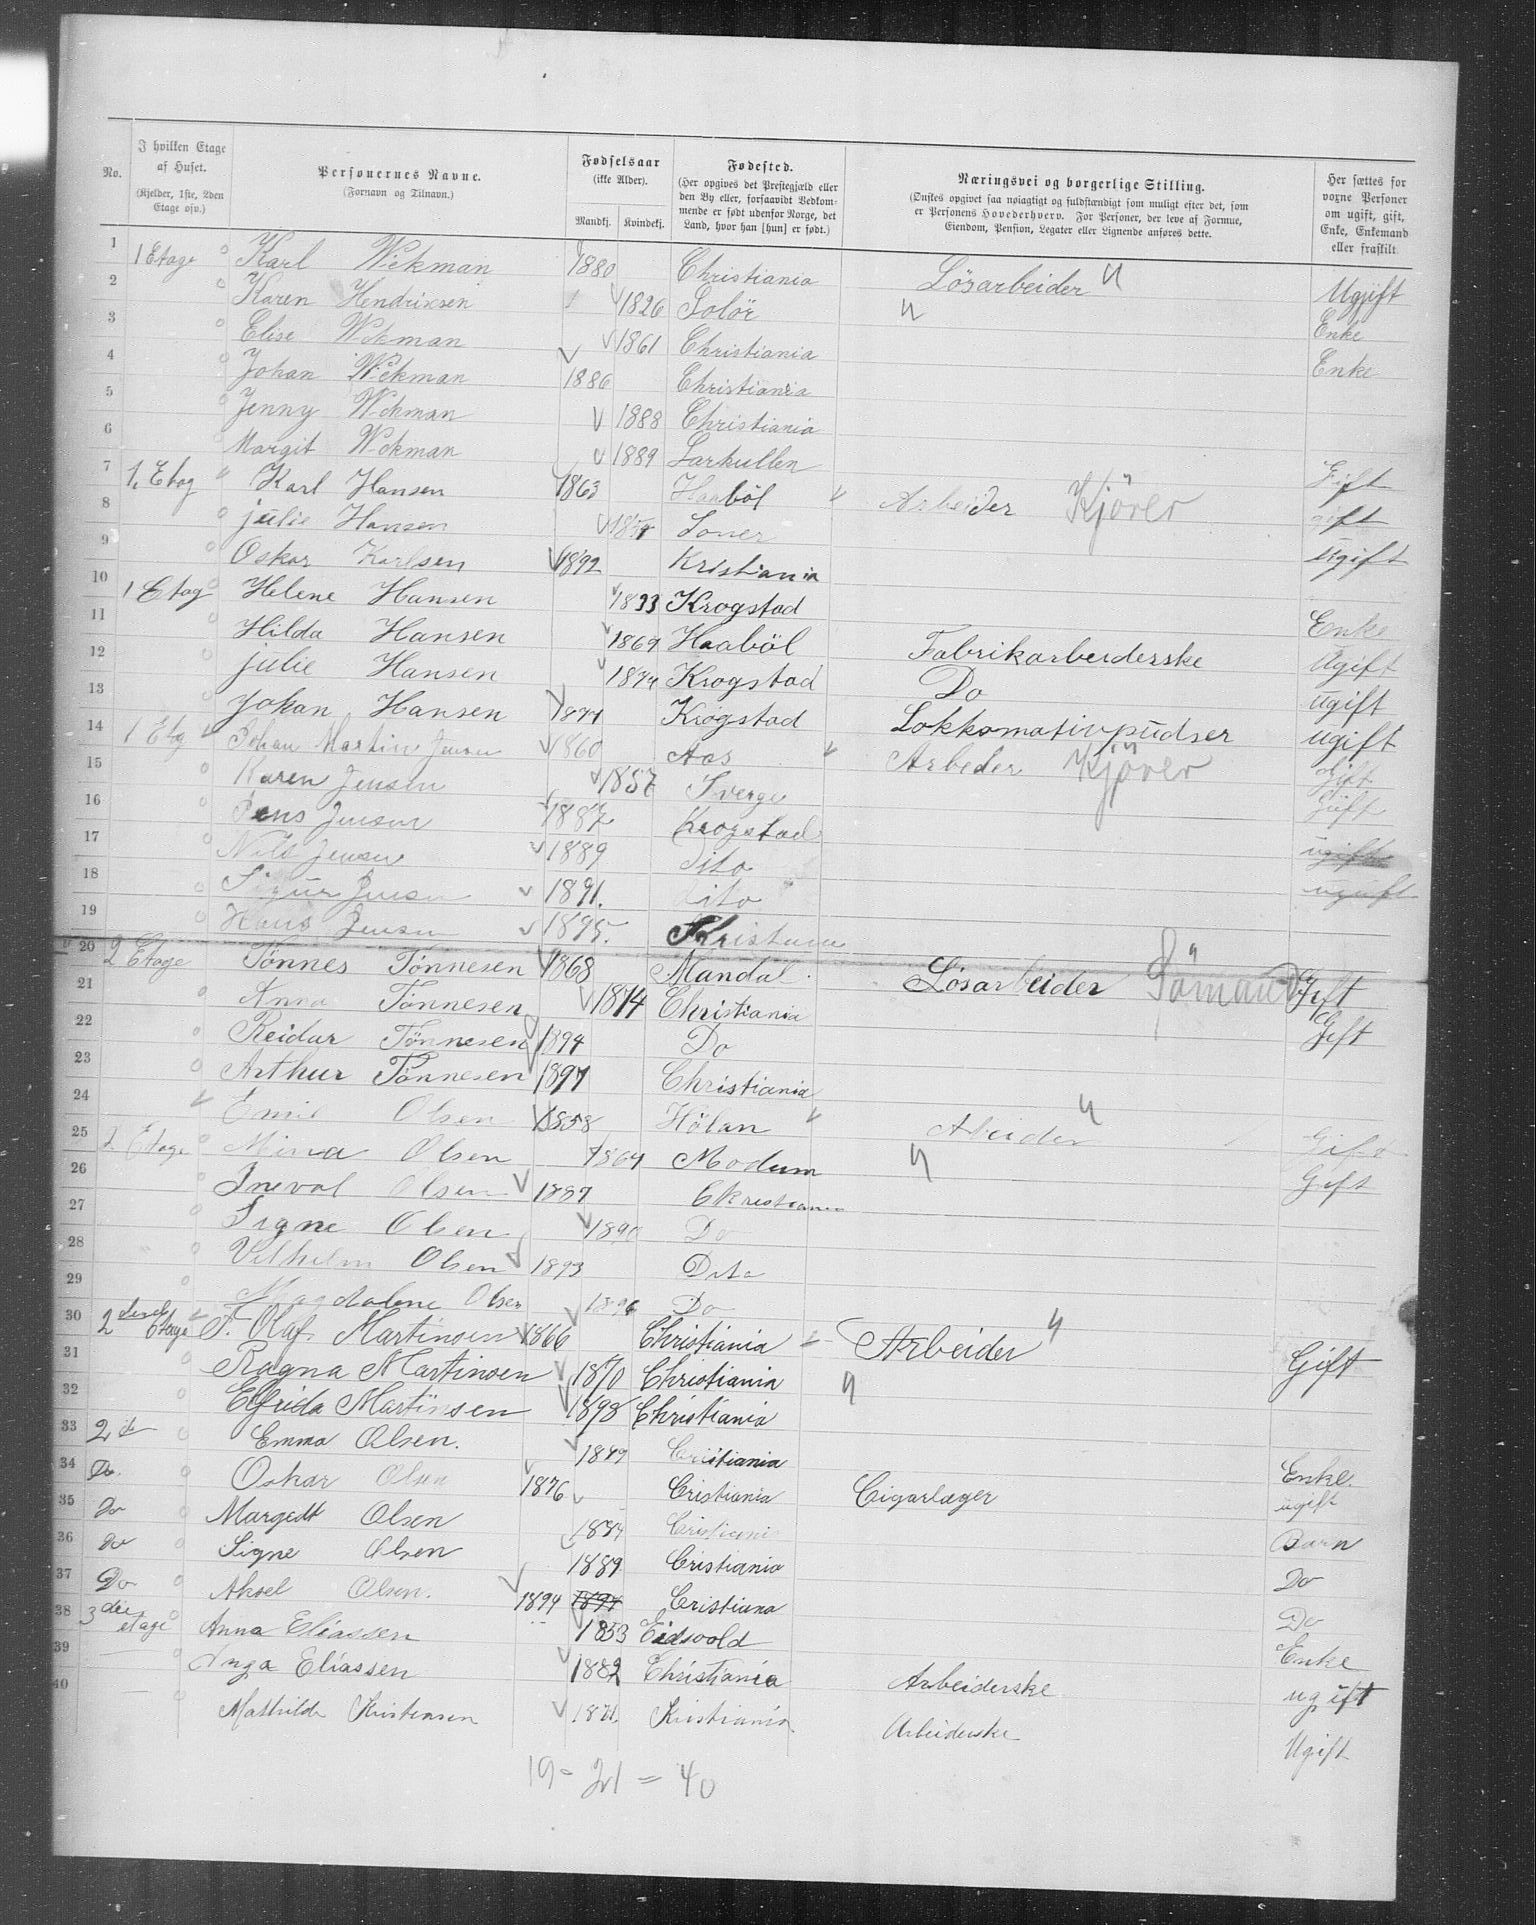 No. I hvilken Etage af Huset. (Kjelder, 1ste, 2den Etage osv.) Personernes Navne. (Fornavn og Tilnavn.) Fødselsaar (ikke Alder). Mandkj. Kvindekj. Fødested. (Her opgives det Prestegjæld eller den By eller, forsaavidt Vedkommende er født udenfor Norge, det Land, hvor han [hun] er født.) Næringsvei og borgerlige Stilling. (Ønskes opgivet saa nøiagtigt og fuldstændigt som muligt efter det, som er Personens Hovederhverv. For Personer, der leve af Formue, Eiendom, Pension, Legater eller Lignende anføres dette. Her sættes for voxne Personer om ugift, gift, Enke, Enkemand eller fraskilt.
1 1 Etage Karl Wekman 1880 Christiania Lösarbeider Ugift
2 Karen Hendriksen 1826 Solör Enke
3 Elise Wekman 1861 Christiania Enke
4 Johan Wekman 1886 Christiania
5 Jenny Wekman 1888 Christiania
6 Margit Wekman 1889 Larkullen
7 1. Etag Karl Hansen 1863 Haaböl Arbeider Kjörer Gift
8 julie Hansen Soner gift
9 Oskar Karlsen 1892 Kristiania ugift
10 1 Etag Helene Hansen 1833 Krogstad Enke
11 Hilda Hansen 1869 Haaböl Fabrikarbeiderske Ugift
12 julie Hansen 1874 Krogstad Do ugift
13 Johan Hansen 1877 Krogstad Lokkomativpudser ugift
14 1 Etg Johan Martin Jensen 1860 Aas Arbeder Kjörer Gift
15 Karen Jensen 1857 Sverge Gift
16 Jens Jensen 1887 Krogstad
17 Nils Jensen 1889 Dito ugift
18 Sigur Jensen 1891. Dito ugift
19 Hans Jensen 1895. Kristiania
20 2 Etage Tönnes Tönnesen 1868 Mandal. Lösarbeider Sömand Gift
21 Anna Tönnesen 1874 Christiania Gift
22 Reidar Tönnesen 1894 Do
23 Arthur Tönnesen 1897 Christiania
24 Emil Olsen 1858 Hölan Abeider Gift
25 2 Etage Mina Olsen 1864 Modum Gift
26 Inevol Olsen 1887 Christiania
27 Signe Olsen 1890 Do
28 Vilhelm Olsen 1893 Dito
29 Magdalene Olsen 1896 Do
30 2 Etage F. Olaf Martinsen 1866 Christiania Arbeider Gift
31 Ragna Martinsen 1870 Christiania
32 Elfrida Martinsen 1898 Christiania
33 2 do Emma Olsen. 1849 Cristiania Enke.
34 Do. Oskar Olsen 1876 Cristiania Cigarlager ugift
35 Do Margedt Olsen 1884 Cristiania Barn
36 Do Signe Olsen 1889 Cristiania Do
37 Do Aksel Olsen. 1894 1894 Cristiana Do
38 3die etage Anna Eliassen 1853 Eidsvold Enke
39 Inga Eliassen 1882 Christiania Arbeiderske ugift
40 Mathilde Kristensen 1871 Kristiania. Arbeiderske Ugift
19 - 21 = 40